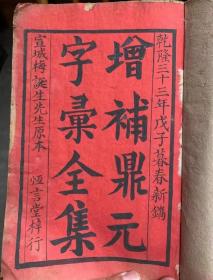 乾隆三十三年戊子暮春新鐫
增補鼎元
字彙全集
宣城梅誕生先生原本
恆言堂梓行